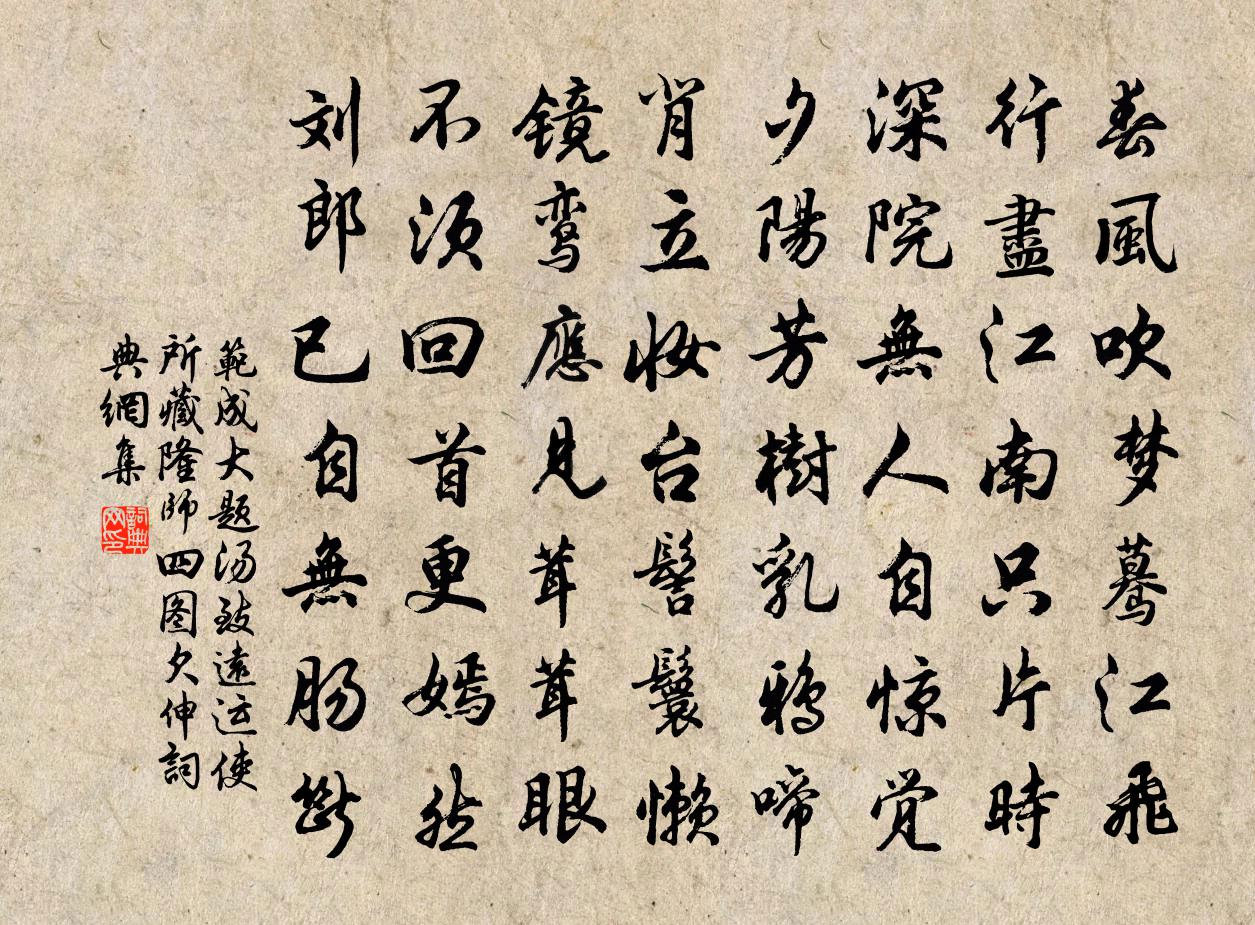 春風吹梦蓦江飛
行盡江南只片時
深院無人自惊觉
夕陽芳樹乳鸦啼
背立妆台髻鬟懒
镜鸾應見茸茸眼
不须回首更嫣然
刘郎已自無肠斷
範成大题汤致遠运使
所藏隆师四图欠伸詞
典網集
詞典网印